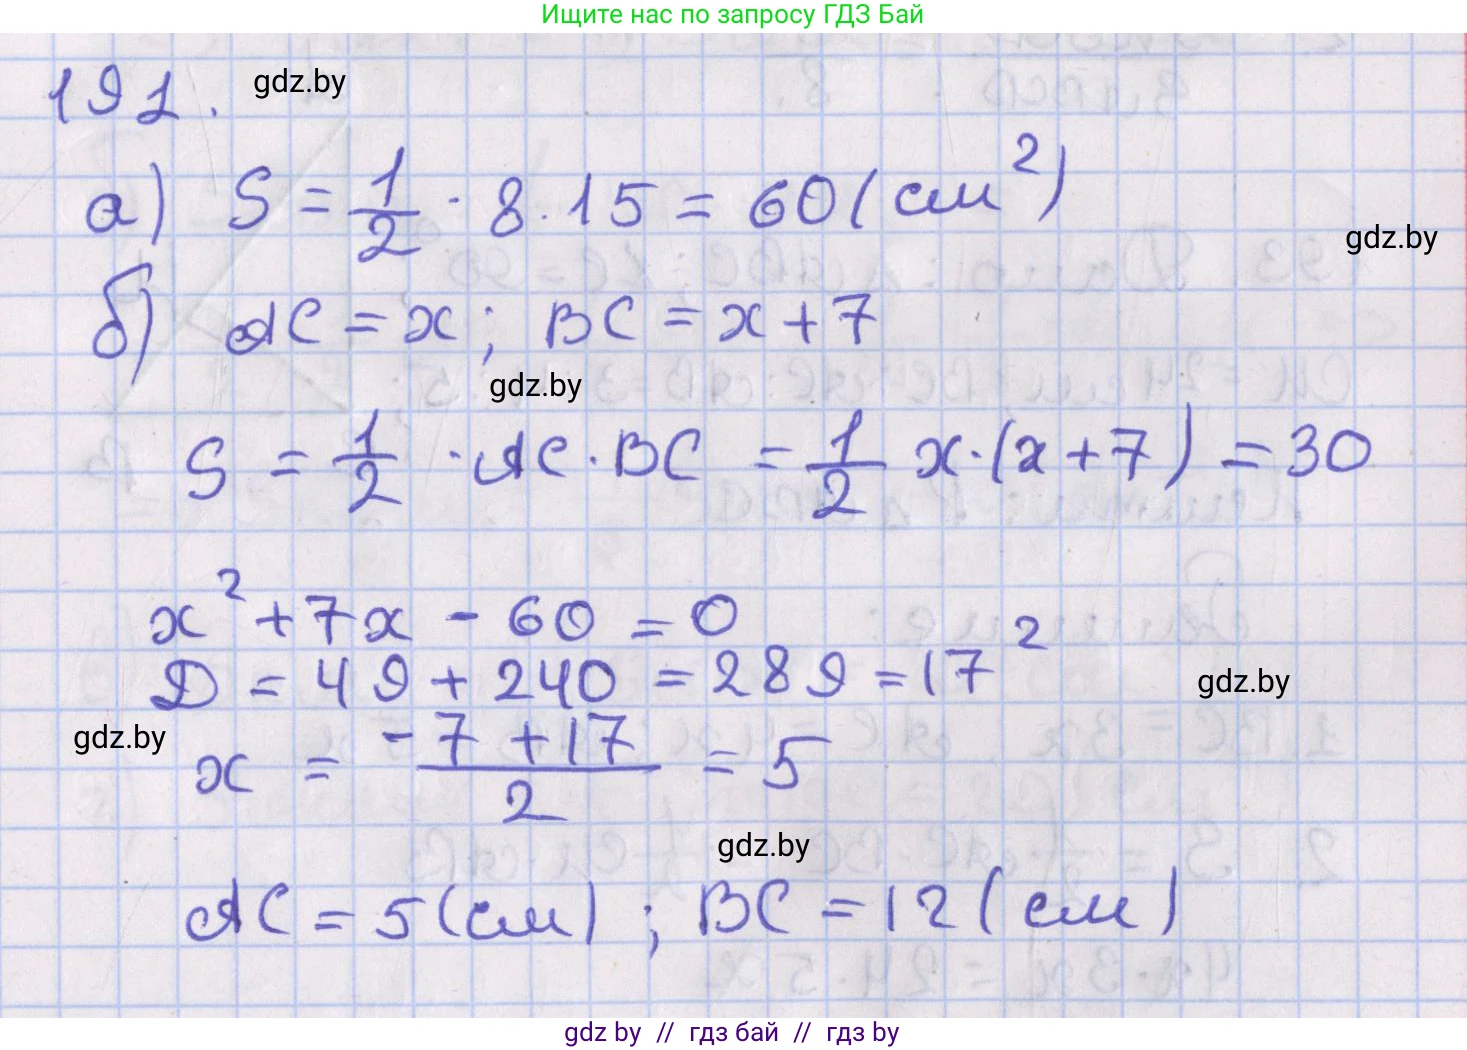 Ищите нас по запросу ГДЗ Бай
191. gdz.by
а) S = 1/2 · 8 · 15 = 60 (см²)
gdz.by
б) AC = x; BC = x + 7
gdz.by
S = 1/2 · AC · BC = 1/2 x · (x + 7) = 30
x² + 7x - 60 = 0
D = 49 + 240 = 289 = 17²
gdz.by
gdz.by
x = (-7 + 17)/2 = 5
gdz.by
AC = 5 (см); BC = 12 (см)
gdz by // гдз бай // гдз by